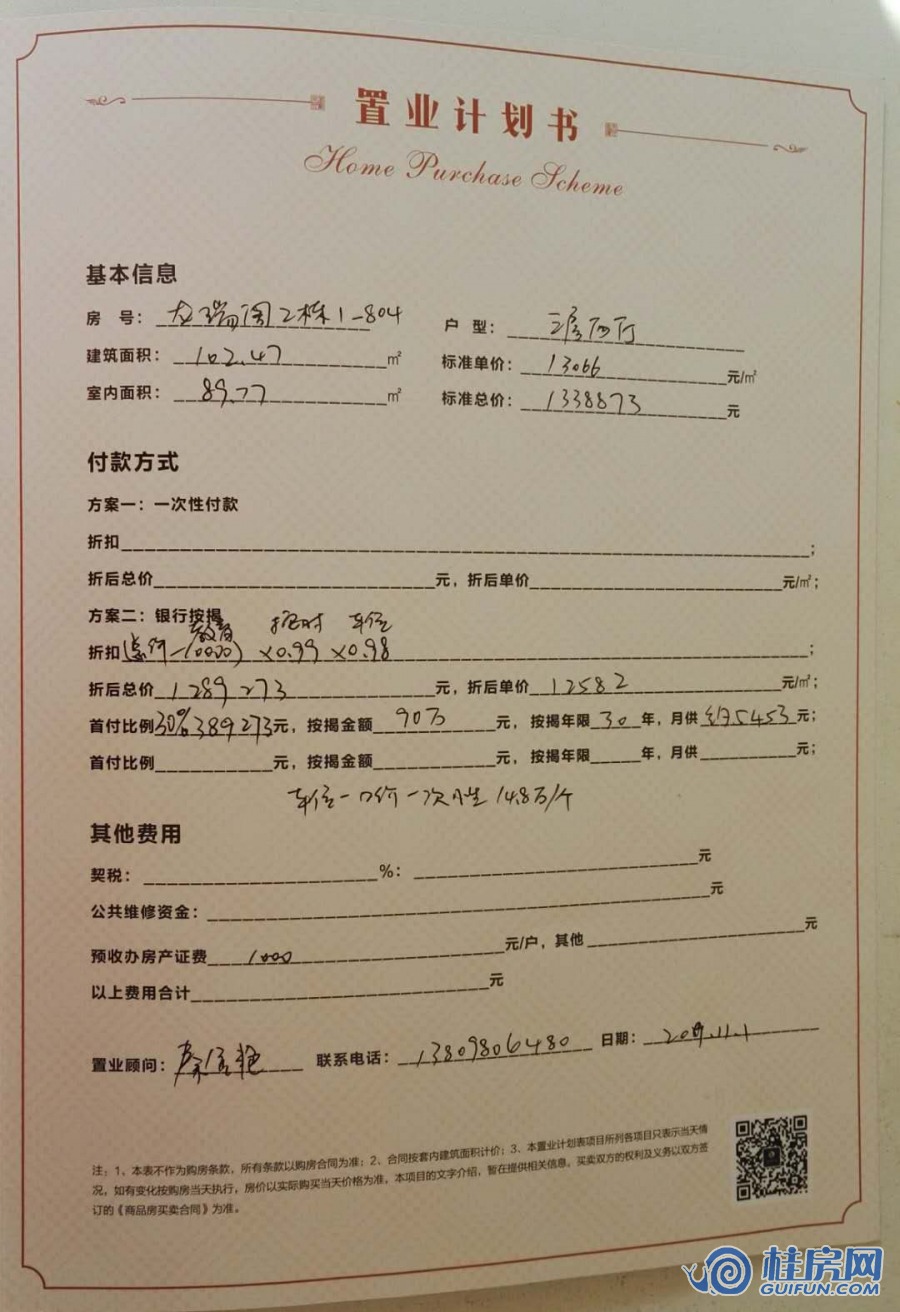 置业计划书
Home Purchase Scheme
基本信息
房 号: 龙瑞阁2栋1-804
户 型: 三房两厅
建筑面积: 102.47 ㎡
标准单价: 13066 元/㎡
室内面积: 89.77 ㎡
标准总价: 1338873 元
付款方式
方案一: 一次性付款
折扣;
折后总价 元, 折后单价 元/㎡;
方案二: 银行按揭
教育 按时 车位
折扣(总价-10000)×0.99×0.98;
折后总价 1289273 元, 折后单价 12582 元/㎡;
首付比例30% 389273元, 按揭金额 90万 元, 按揭年限 30 年, 月供 约5453元;
首付比例 元, 按揭金额 元, 按揭年限 年, 月供 元;
车位一口价一次性 14.8万/个
其他费用
契税: %: 元
公共维修资金: 元
预收办房产证费 1000 元/户, 其他 元
以上费用合计 元
置业顾问: 联系电话: 13809806480 日期: 2019.11.1
注: 1、本表不作为购房条款, 所有条款以购房合同为准; 2、合同按套内建筑面积计价; 3、本置业计划表项目所列各项目只表示当天情
况, 如有变化按购房当天执行, 房价以实际购买当天价格为准, 本项目的文字介绍, 暂在提供相关信息, 买卖双方的权利及义务以双方签
订的《商品房买卖合同》为准。
桂房网
GUIFUN.COM